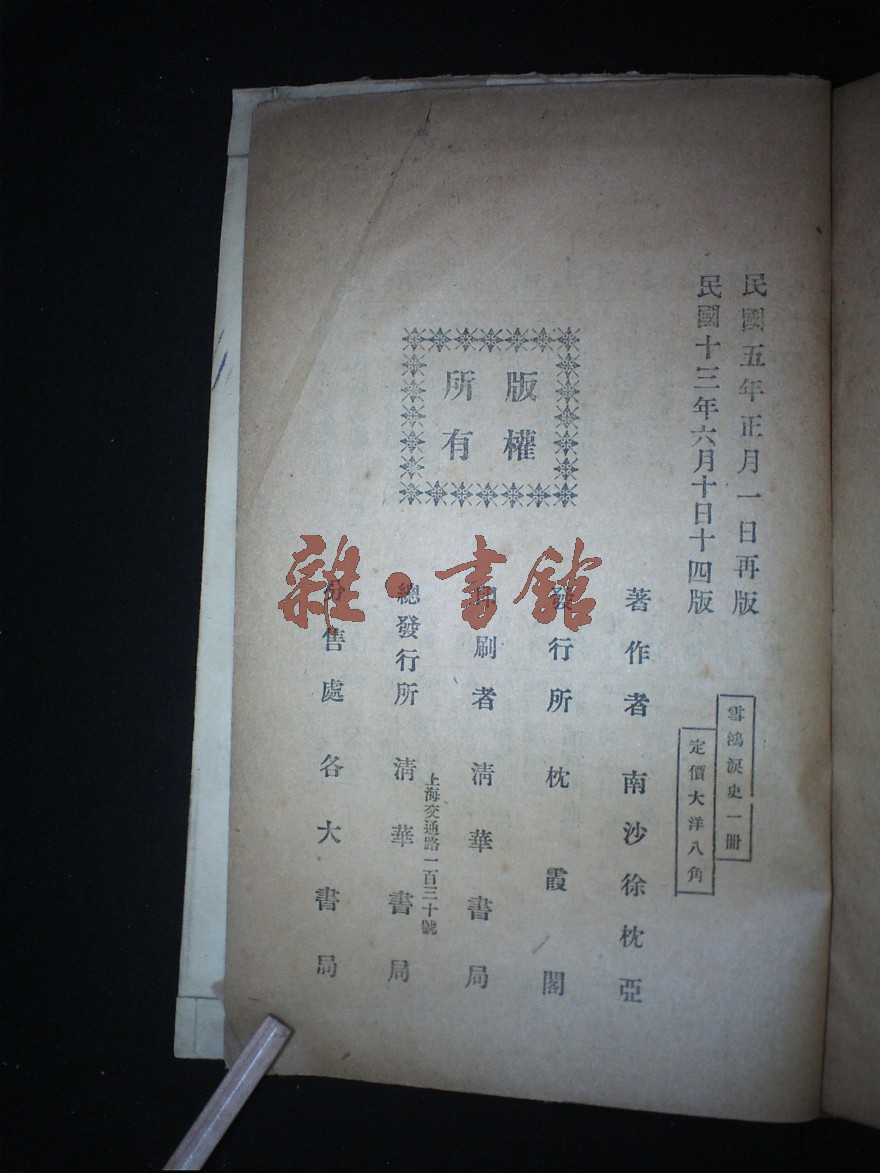 民國五年正月一日再版
民國十三年六月十日十四版
雪鴻淚史一冊
定價大洋八角
版權
所有
著作者 南沙徐枕亞
發行所 枕霞閣
印刷者 清華書局
總發行所 清華書局
上海交通路一百三十號
分售處 各大書局
雜·書館